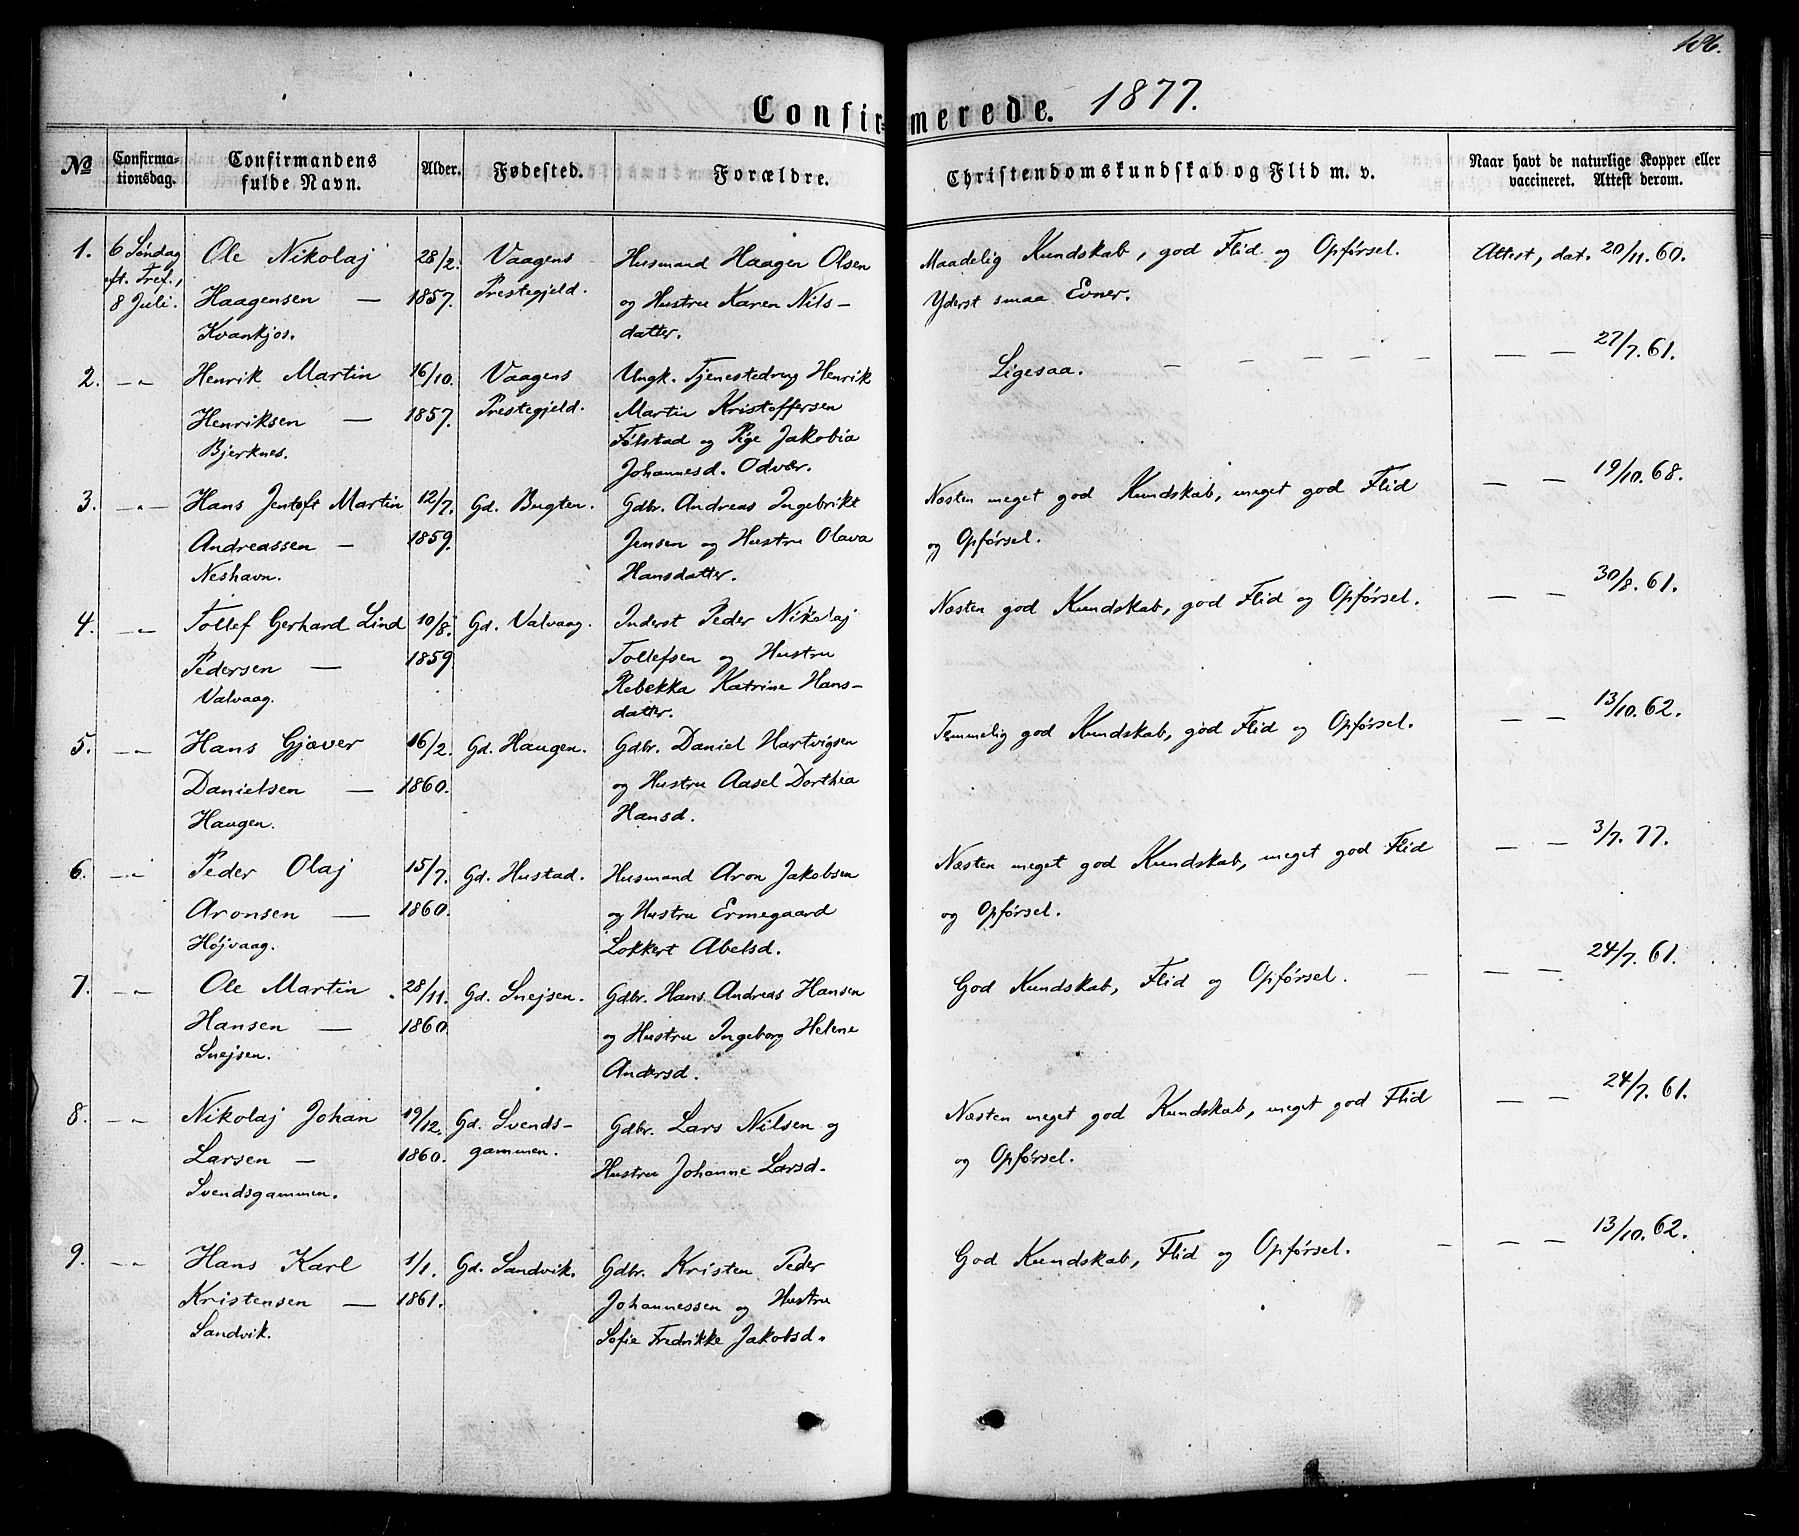 106.
Confirmerede. 1877.
No
Confirmationsdag.
Confirmandens fulde Navn.
Alder.
Fødested.
Forældre.
Christendomskundskab og Flid m. v.
Naar havt de naturlige Kopper eller vaccineret. Attest derom.
1. 6 Søndag Ole Nikolaj 28/2. Vaagens Husmand Haagen Olsen Maadelig Kundskab, god Flid og Opførsel. Attest, dat. 20/11. 60.
eft. Tref., Haagensen — 1857. Prestegjeld. og Hustru Karen Nils- Yderst smaa Evner.
8 Juli. Kvankjos. datter.
2. —„— Henrik Martin 16/10. Vaagens Ungk. Tjenestedreng Henrik Ligesaa. — — — — — — — 27/7. 61.
Henriksen — 1857. Prestegjeld. Martin Kristoffersen
Bjerknes. Følstad og Pige Jakobia
Johannesd. Odvær.
3. —„— Hans Jentoft Martin 12/7. Gd. Bugten. Gdbr. Andreas Ingebrikt Næsten meget god Kundskab, meget god Flid — — 19/10. 68.
Andreassen — 1859. Jensen og Hustru Olava og Opførsel.
Neshavn. Hansdatter.
4. —„— Tollef Gerhard Lind 10/8. Gd. Valvaag. Inderst Peder Nikolaj Næsten god Kundskab, god Flid og Opførsel. — — 30/8. 61.
Pedersen — 1859 Tollefsen og Hustru
Valvaag. Rebekka Katrine Hans-
datter.
5. —„— Hans Gjæver 16/2. Gd. Haugen. Gdbr. Daniel Hartvigsen Temmelig god Kundskab, god Flid og Opførsel. — — 13/10. 62.
Danielsen — 1860. og Hustru Aasel Dorthea
Haugen. Hansd.
6. —„— Peder Olaj 15/7. Gd. Hustad. Husmand Aron Jakobsen Næsten meget god Kundskab, meget god Flid — — 3/7. 77.
Aronsen — 1860. og Hustru Ermegaard og Opførsel.
Højvaag. Lokkert Abelsd.
7. —„— Ole Martin 28/11. Gd. Snejsen. Gdbr. Hans Andreas Hansen God Kundskab, Flid og Opførsel. — — — 24/7. 61.
Hansen — 1860 og Hustru Ingeborg Helene
Snejsen. Andersd.
8. —„— Nikolaj Johan 19/12. Gd. Svends- Gdbr. Lars Nilsen og Næsten meget god Kundskab, meget god Flid — — 24/7. 61.
Larsen — 1860. gammen. Hustru Johanne Larsd. og Opførsel.
Svendsgammen.
9. —„— Hans Karl 1/1. Gd. Sandvik. Gdbr. Kristen Peder God Kundskab, Flid og Opførsel. — — — 13/10. 62.
Kristensen — 1861. Johannessen og Hustru
Sandvik. Sofie Fredrikke Jakobsd.